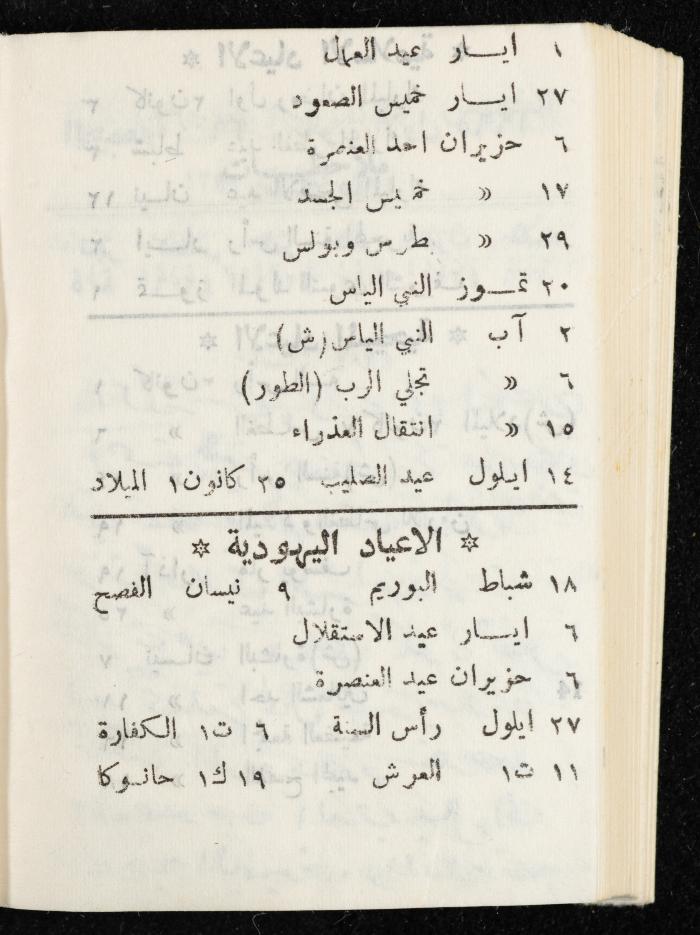 ١ ايــار عيد العمل
٢٧ ايــار خميس الصعود
٦ حزيران احد العنصرة
١٧ » خميس الجسد
٢٩ » بطرس وبولس
٢٠ تمــوز النبي الياس
٢ آب النبي الياس (ش)
٦ » تجلي الرب (الطور)
١٥ » انتقال العذراء
١٤ ايلول عيد الصليب ٢٥ كانون١ الميلاد
✡ الاعياد اليهودية ✡
١٨ شباط البوريم ٩ نيسان الفصح
٦ ايــار عيد الاستقلال
٦ حزيران عيد العنصرة
٢٧ ايلول رأس السنة ٦ ت١ الكفارة
١١ ت١ العرش ١٩ ك١ حانــوكا